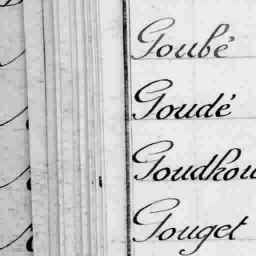 Goubé
Goudé
Goudkou
Gouget